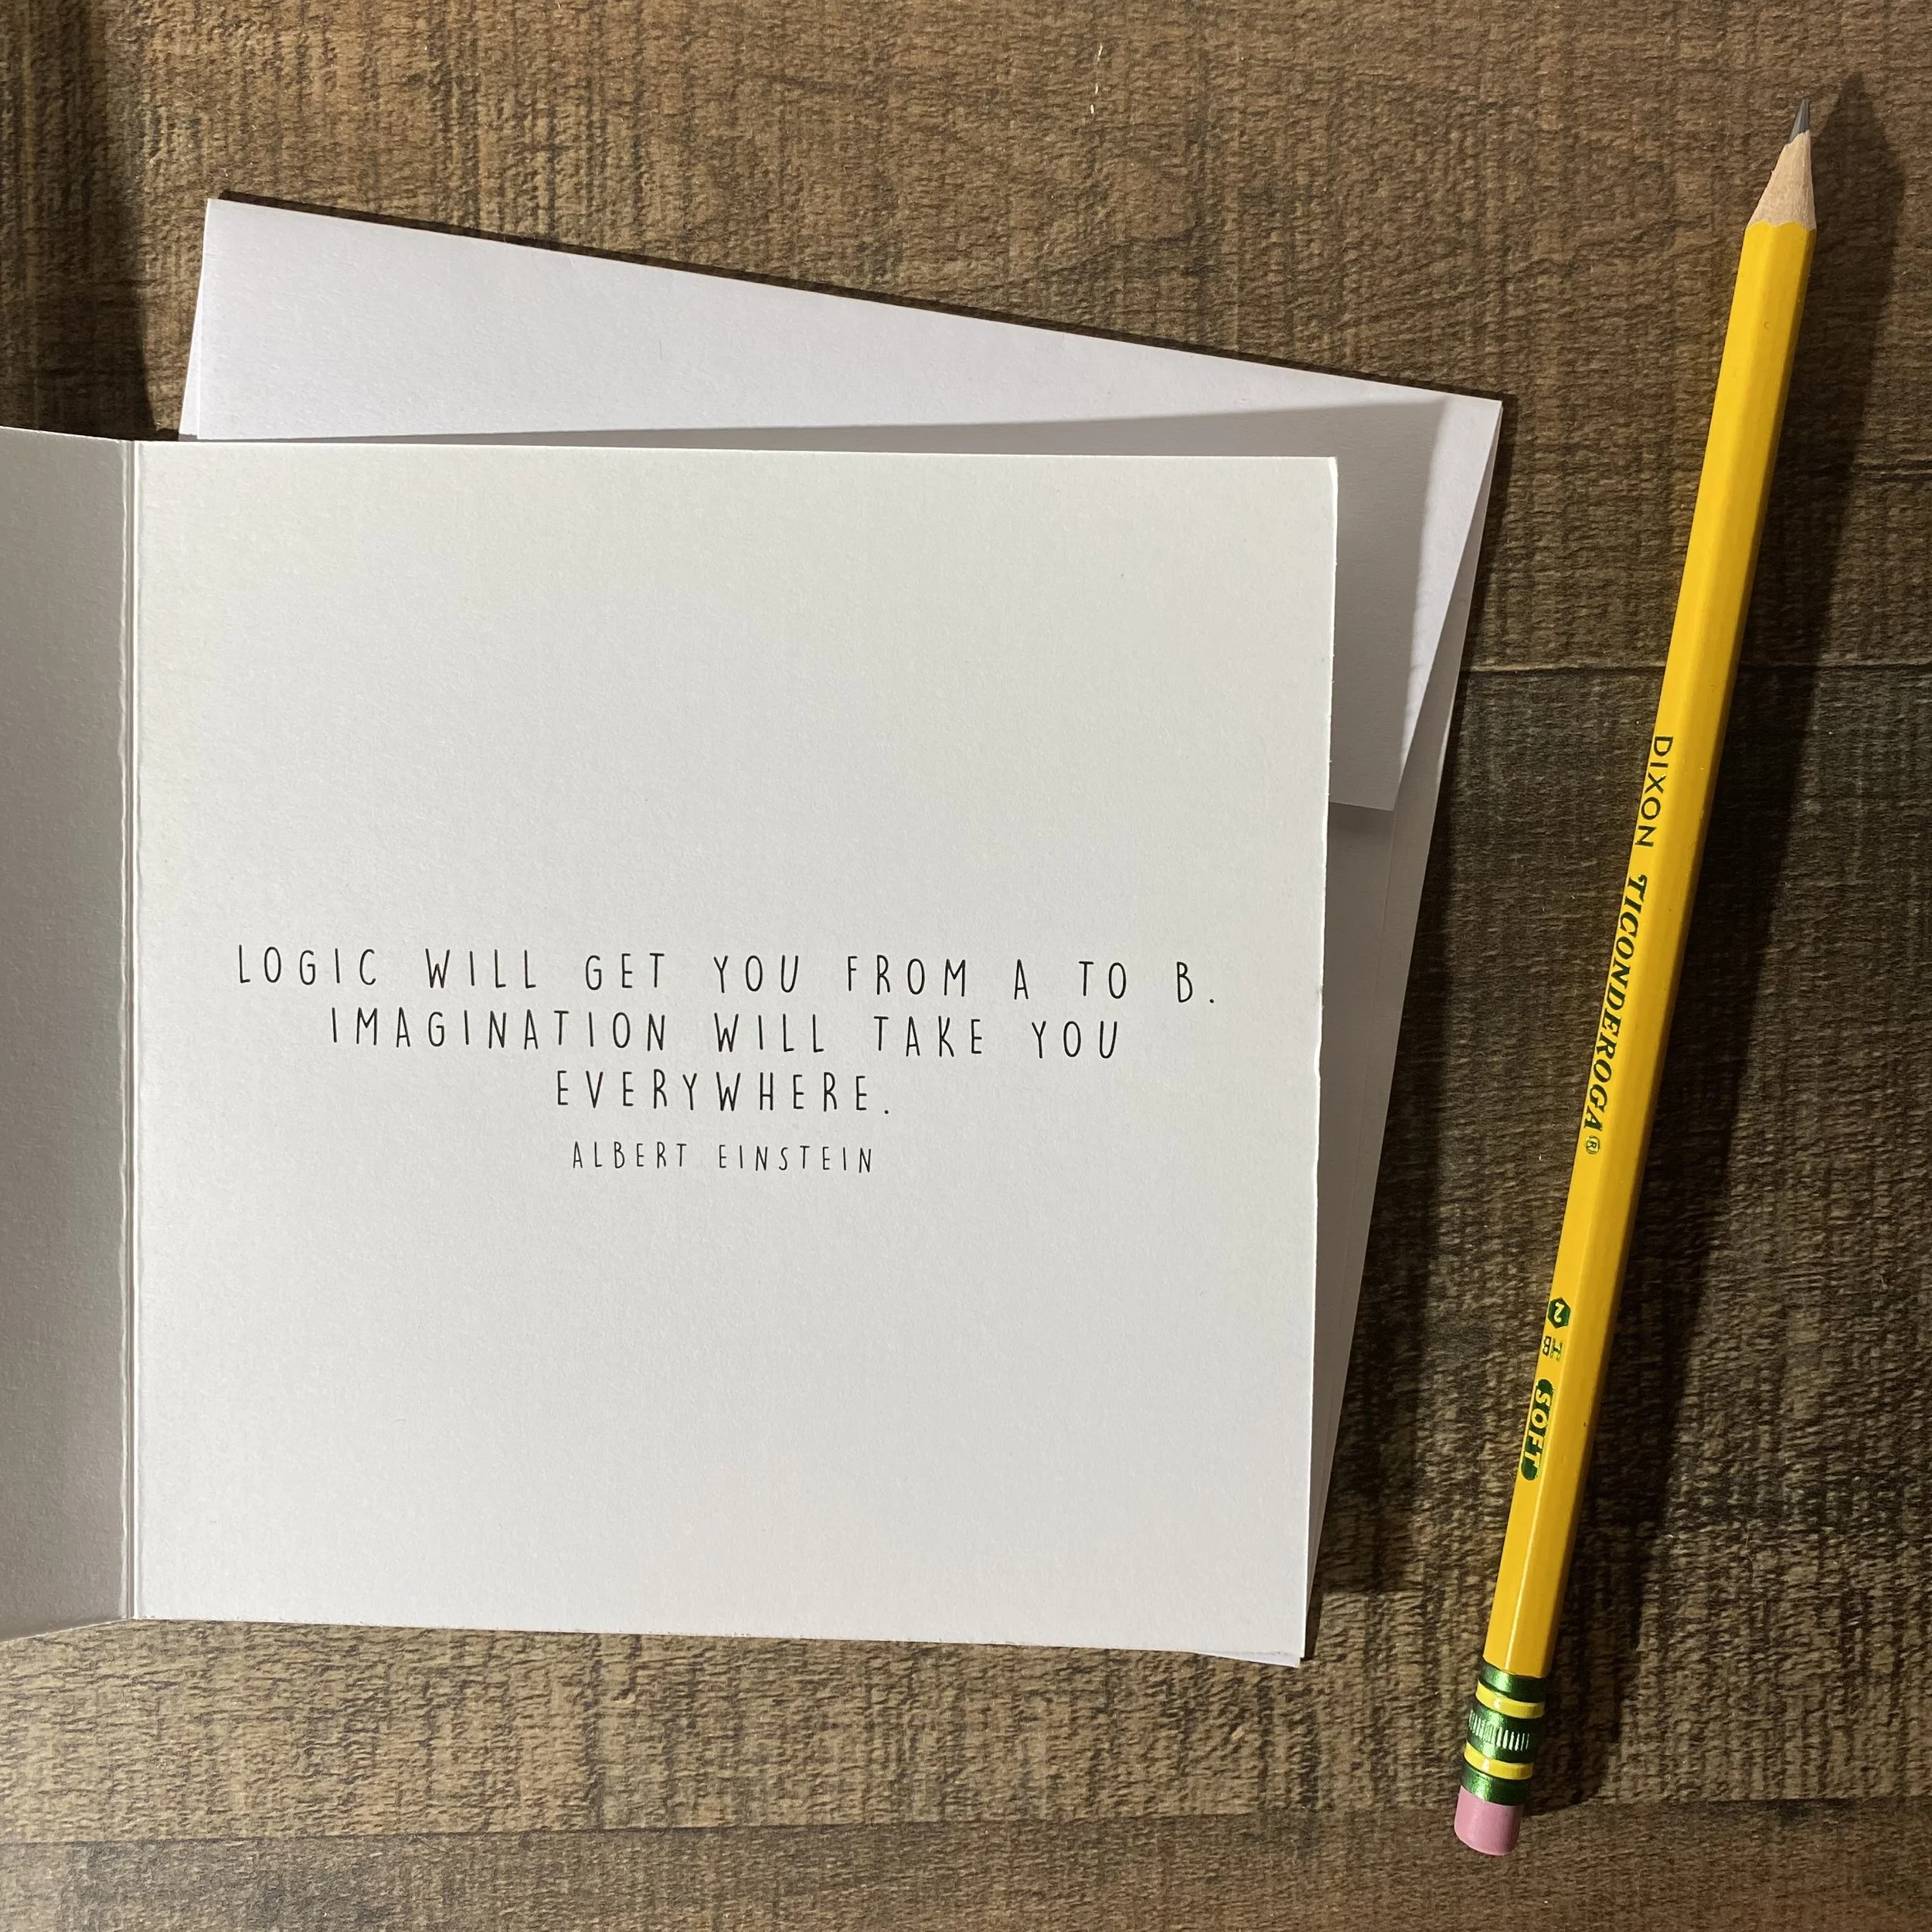 LOGIC WILL GET YOU FROM A TO B.
IMAGINATION WILL TAKE YOU
EVERYWHERE.
ALBERT EINSTEIN
DIXON TICONDEROGA® 2 HB SOFT